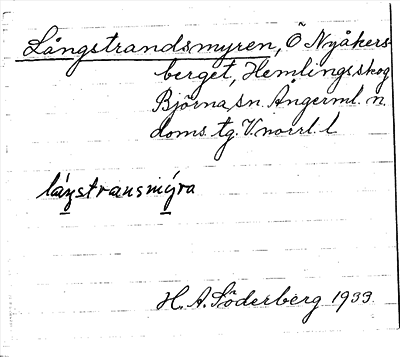 Långstrandsmyren, Ö Nyåkers-
berget, Hemlings skog
Björna sn. Ångerml. n.
doms. tg. V. norrl. l
låŋstransmýra
H. A. Söderberg 1933.